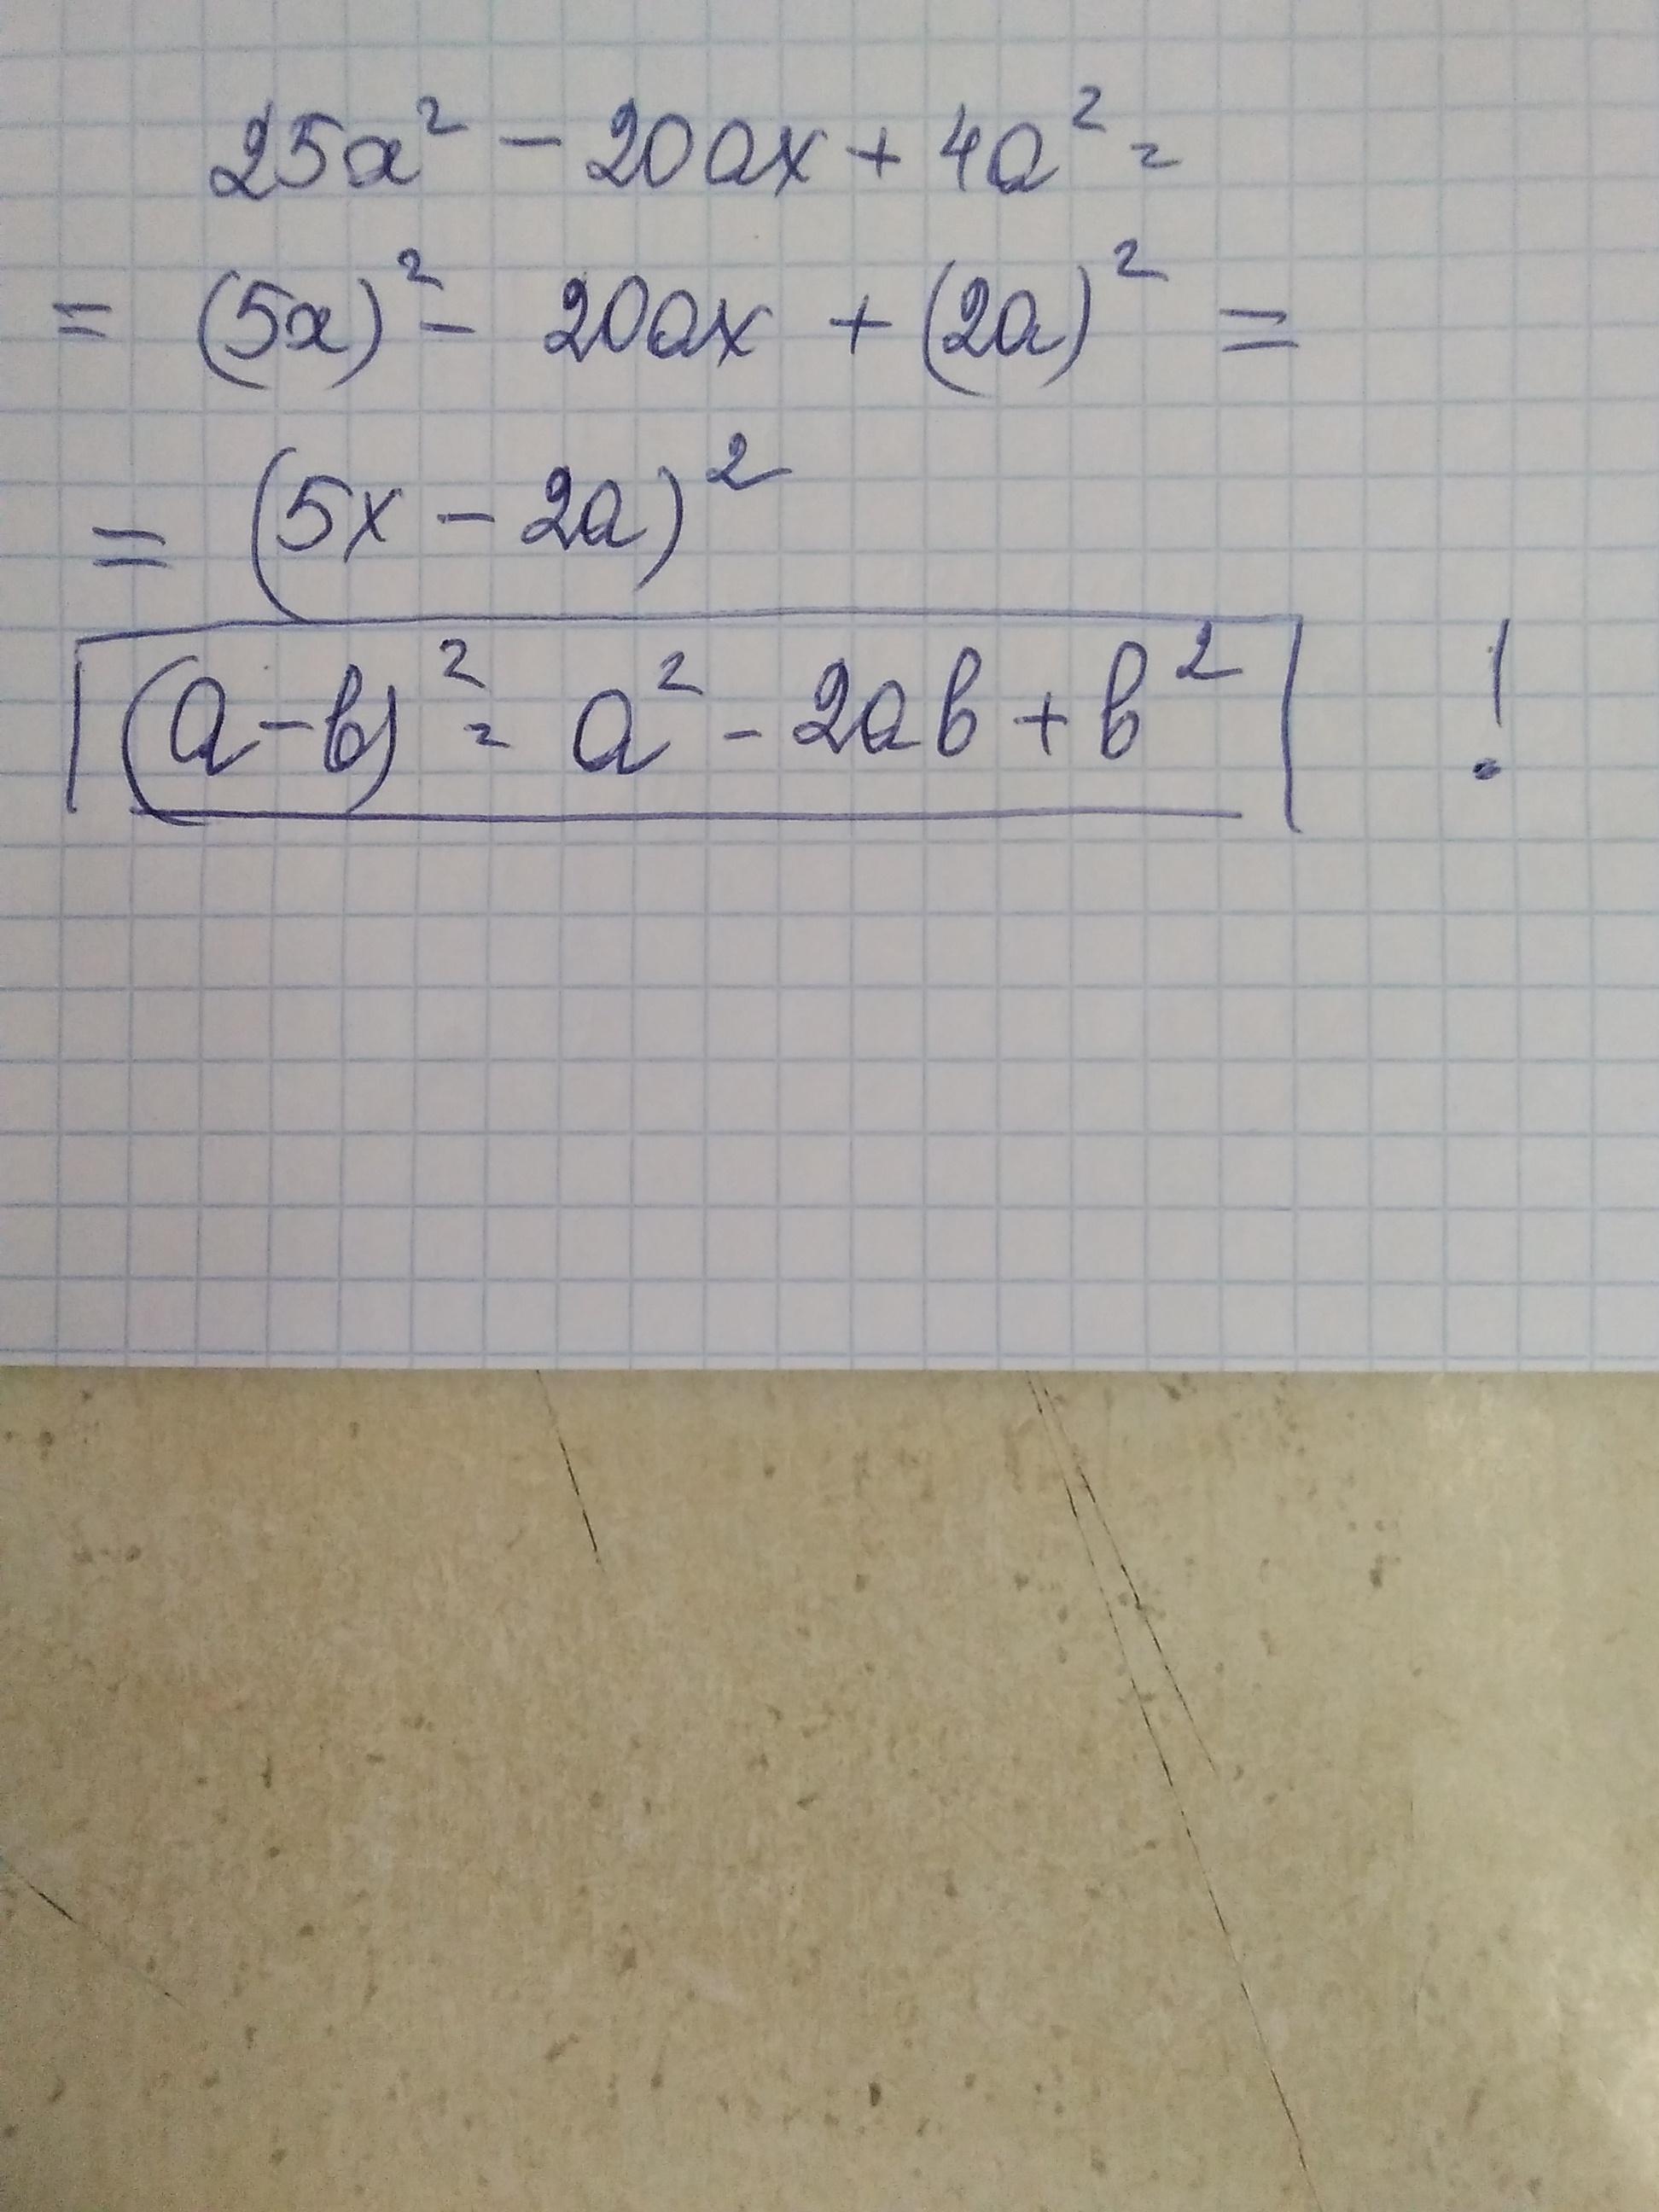 25x² - 20ax + 4a² =
= (5x)² - 20ax + (2a)² =
= (5x - 2a)²
(a-b)² = a² - 2ab + b² !